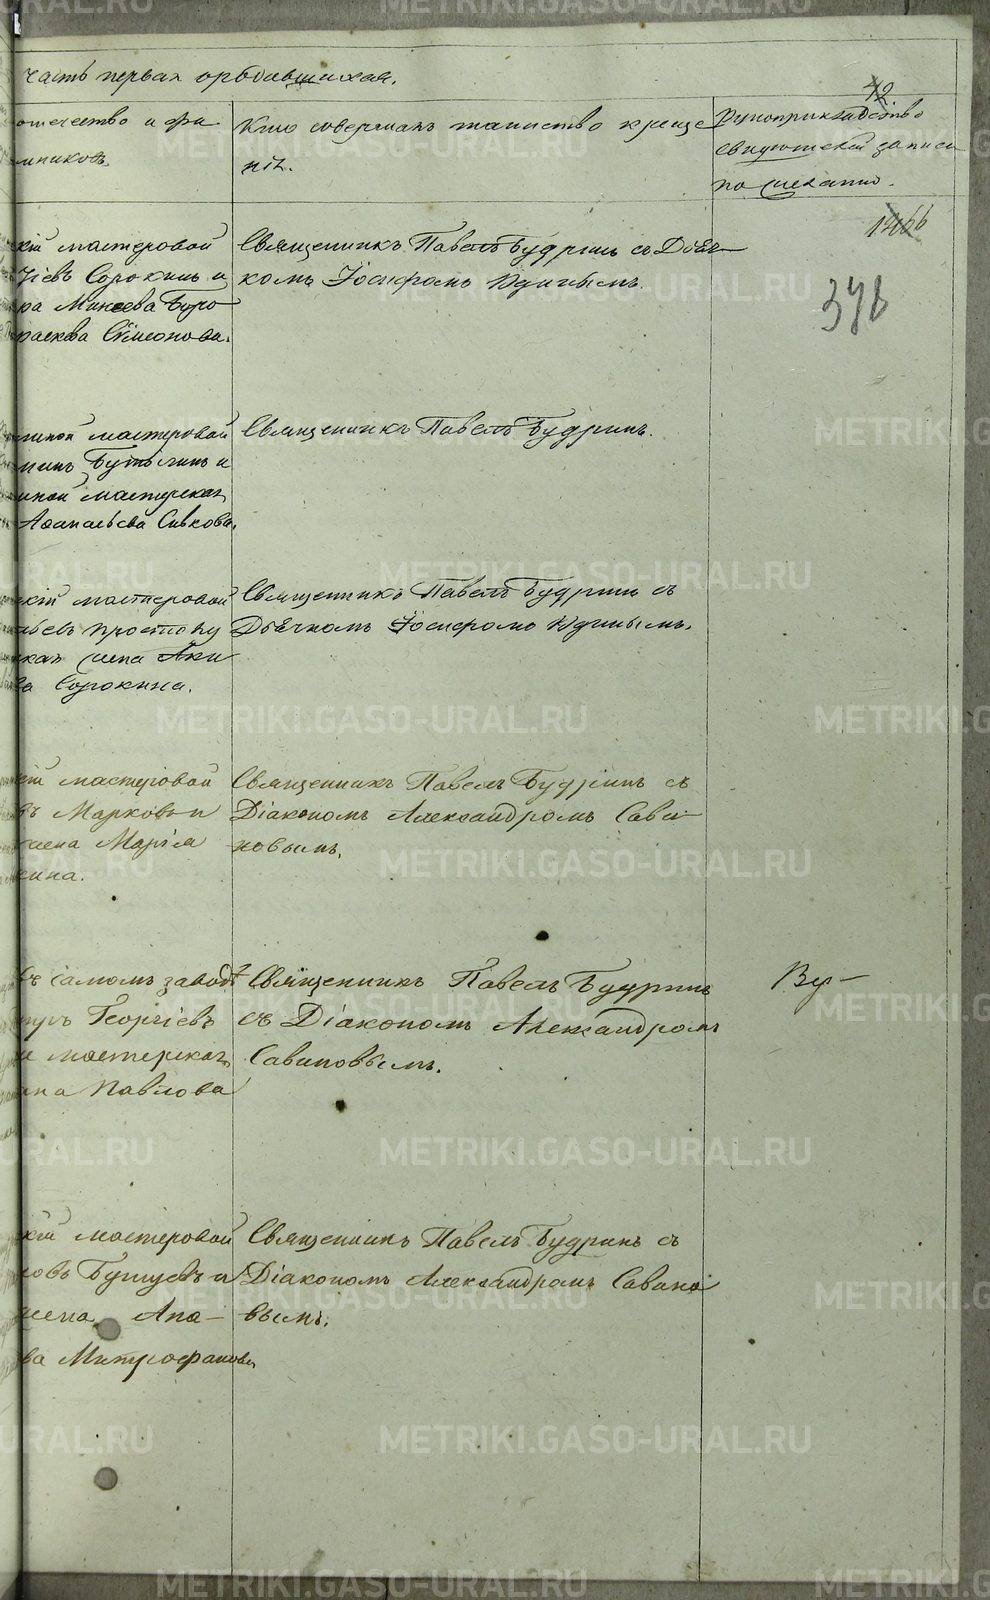 часть первая о родившихся.
42
отчество и фа
мников.
Кто совершалъ таинство креще
нія.
Рукоприкладство
свидѣтелей записи
по желанію.
1466
376
кій мастеровой
гіевъ Сорокинъ и
ра Минеева Буро
раскева Симеонова.
Священникъ Павелъ Будринъ съ Дьяч
комъ Іосифомъ Юдинымъ.
мастеровой
Бутылинъ и
мастерская
Афанасьева Сивкова.
Священникъ Павелъ Будринъ.
скій мастеровой
жена Аки
ва Сорокина.
Священникъ Павелъ Будринъ съ
Дьячкомъ Іосифомъ Юдинымъ.
кій мастеровой
въ Марковъ и
жена Марія
кина.
Священникъ Павелъ Будринъ съ
Діакономъ Александромъ Сави
новымъ.
въ самомъ заводѣ
Георгіевъ
и мастерская
на Павлова
Священникъ Павелъ Будринъ
съ Діакономъ Александромъ
Савиновымъ.
Ву
кій мастеровой
ковъ Бушуевъ и
жена Ана
ва Митрофанова
Священникъ Павелъ Будринъ съ
Діакономъ Александромъ Савино
вымъ.
METRIKI.GASO-URAL.RU